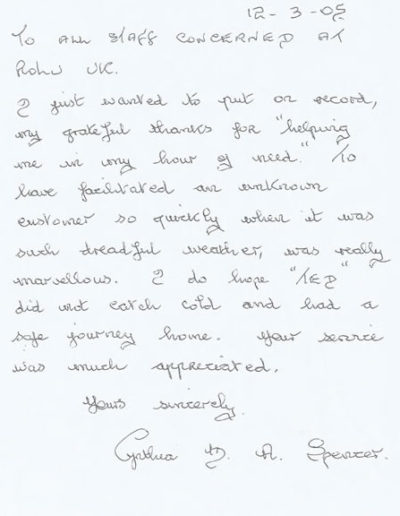 12-3-05
To ALL STAFF CONCERNED AT
Rohu UK.
I just wanted to put on record,
my grateful thanks for "helping
me in my hour of need." To
have facilitated an unknown
customer so quickly when it was
such dreadful weather, was really
marvellous. I do hope "TED"
did not catch cold and had a
safe journey home. Your service
was much appreciated.
Yours sincerely.
Cynthia D. A. Spencer.